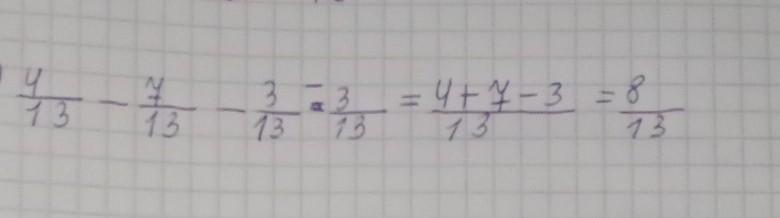 4/13 - 7/13 - 3/13 = 3/13 = 4+7-3/13 = 8/13